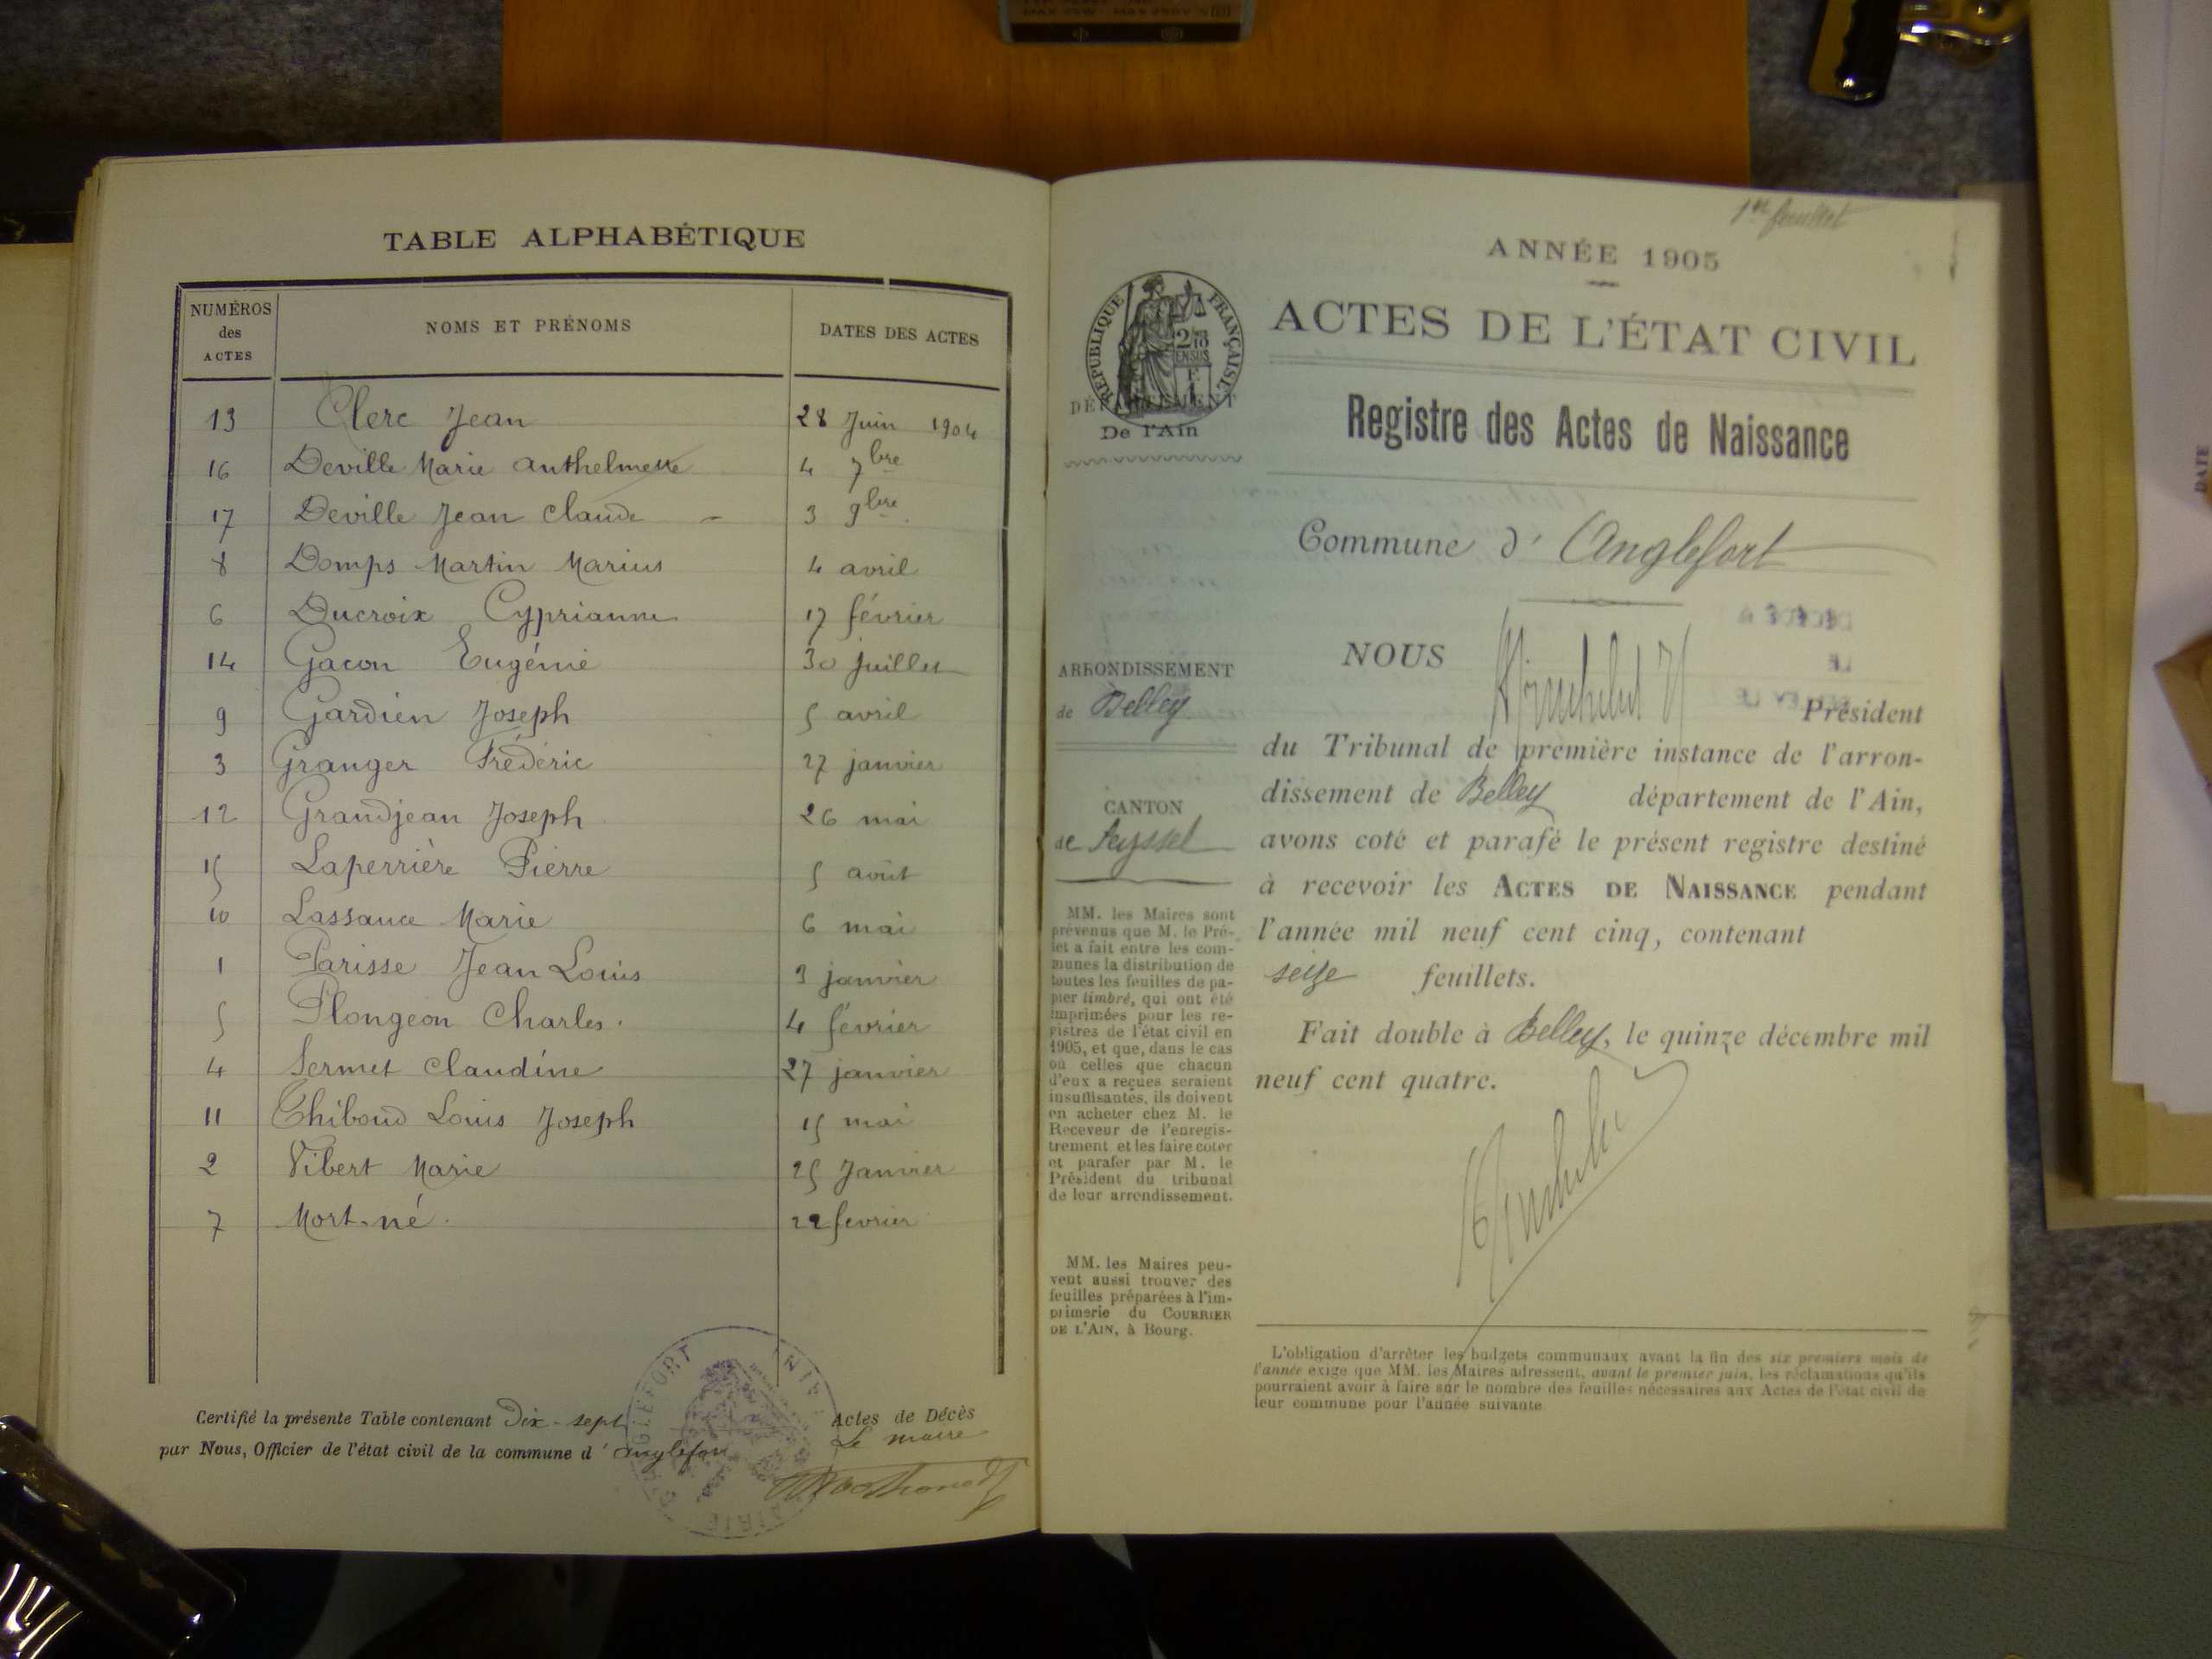 TABLE ALPHABÉTIQUE
NUMÉROS des ACTES NOMS ET PRÉNOMS DATES DES ACTES
13 Clerc Jean 28 Juin 1904
16 Deville Marie Anthelmette 4 7bre
17 Deville Jean Claude - 3 9bre
8 Domps Martin Marius 4 avril
6 Ducroix Cyprianne 17 février
14 Gacon Eugénie 30 juillet
9 Gardien Joseph 5 avril
3 Granger Frédéric 27 janvier
12 Grandjean Joseph 26 mai
15 Laperrière Pierre 5 août
10 Lassauce Marie 6 mai
1 Parisse Jean Louis 3 janvier
5 Plongeon Charles. 4 février
4 Sermet Claudine 27 janvier
11 Thiboud Louis Joseph 15 mai
2 Vibert Marie 25 Janvier
7 Mort-né. 22 fevrier
Certifié la présente Table contenant Dix-sept Actes de Décès
par Nous, Officier de l'état civil de la commune d'Anglefort Le maire
MAIRIE ANGLEFORT
1er feuillet
ANNÉE 1905
RÉPUBLIQUE FRANÇAISE
ACTES DE L'ÉTAT CIVIL
DÉPARTEMENT
De l'Ain
Registre des Actes de Naissance
Commune d'Anglefort
ARRONDISSEMENT
de Belley
CANTON
de Seyssel
MM. les Maires sont
prévenus que M. le Pré-
fet a fait entre les com-
munes la distribution de
toutes les feuilles de pa-
pier timbré, qui ont été
imprimées pour les re-
gistres de l'état civil en
1905, et que, dans le cas
où celles que chacun
d'eux a reçues seraient
insuffisantes, ils doivent
en acheter chez M. le
Receveur de l'enregis-
trement et les faire coter
et parafer par M. le
Président du tribunal
de leur arrondissement.
MM. les Maires peu-
vent aussi trouver des
feuilles préparées à l'im-
primerie du COURRIER
DE L'AIN, à Bourg.
NOUS
Président
du Tribunal de première instance de l'arron-
dissement de Belley département de l'Ain,
avons coté et parafé le présent registre destiné
à recevoir les ACTES DE NAISSANCE pendant
l'année mil neuf cent cinq, contenant
seize feuillets.
Fait double à Belley, le quinze décembre mil
neuf cent quatre.
L'obligation d'arrêter les budgets communaux avant la fin des six premiers mois de
l'année exige que MM. les Maires adressent, avant le premier juin, les réclamations qu'ils
pourraient avoir à faire sur le nombre des feuilles nécessaires aux Actes de l'état civil de
leur commune pour l'année suivante
DATE